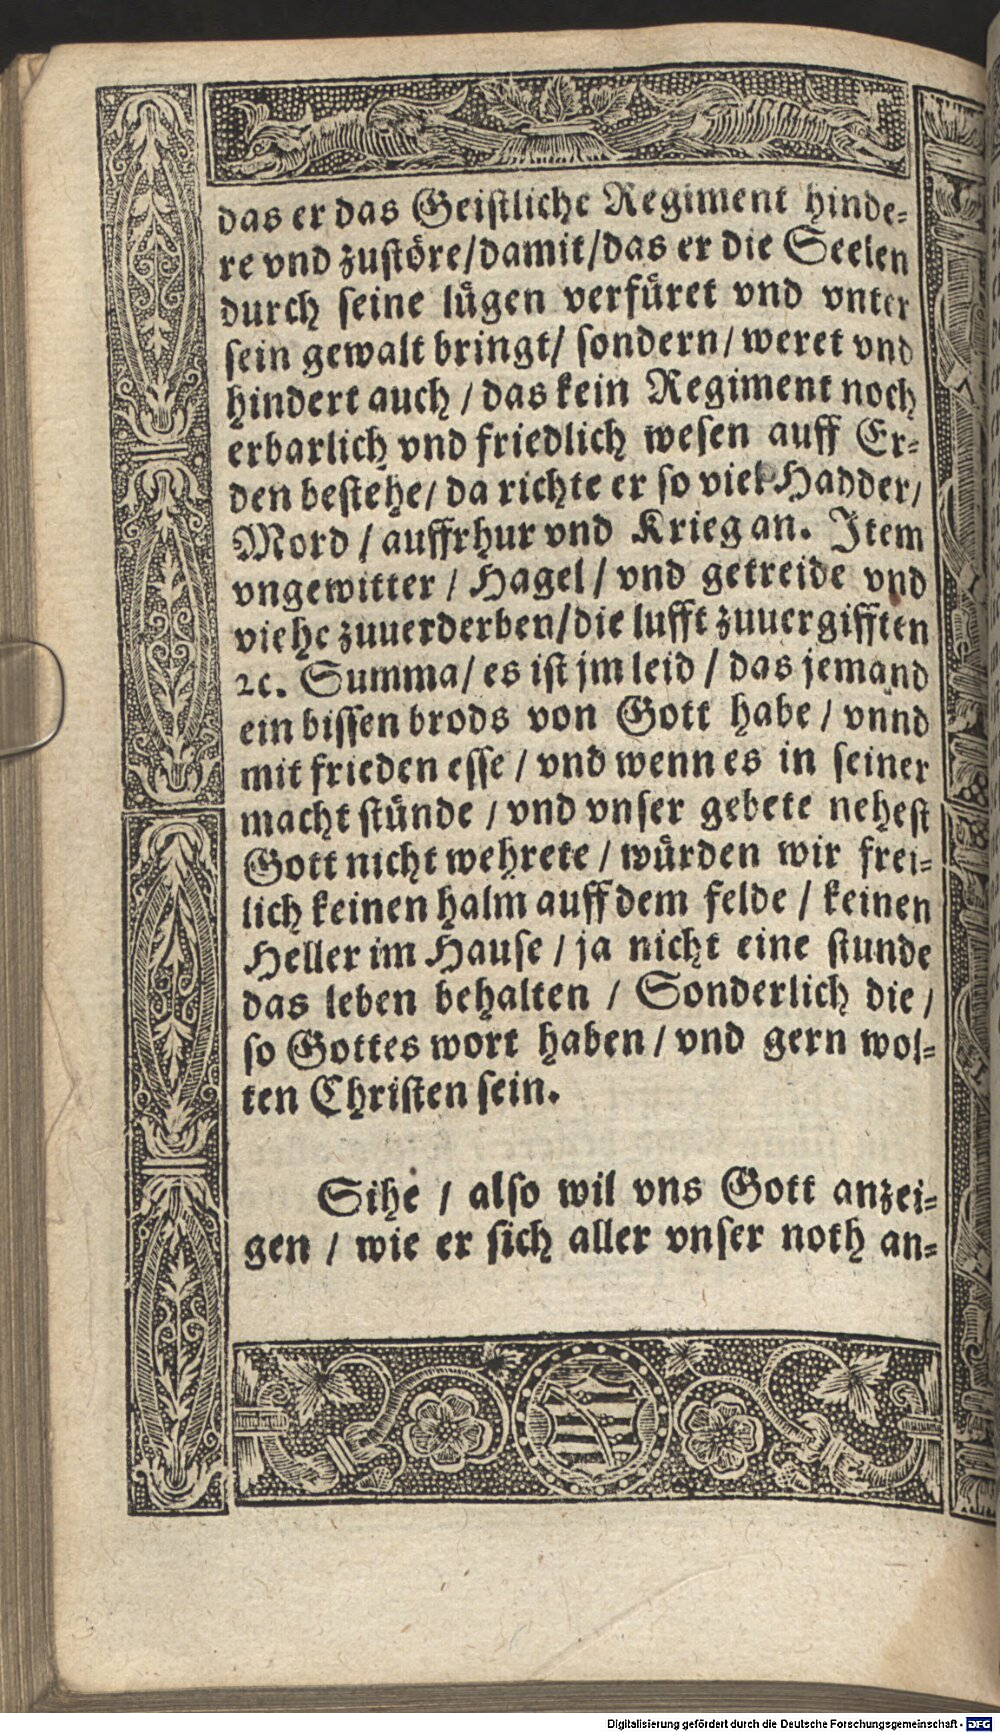 das er das Geistliche Regiment hinde-
re vnd zustöre/damit/das er die Seelen
durch seine lügen verfüret vnd vnter
sein gewalt bringt/ sondern/ weret vnd
hindert auch / das kein Regiment noch
erbarlich vnd friedlich wesen auff Er-
den bestehe/ da richte er so viel Hadder/
Mord / auffrhur vnd Krieg an. Item
vngewitter / Hagel / vnd getreide vnd
viehe zuuerderben/die lufft zuuergifften
ꝛc. Summa/ es ist jm leid / das jemand
ein bissen brods von Gott habe / vnnd
mit frieden esse / vnd wenn es in seiner
macht stünde / vnd vnser gebete nehest
Gott nicht wehrete / würden wir frei-
lich keinen halm auff dem felde / keinen
Heller im Hause / ja nicht eine stunde
das leben behalten / Sonderlich die /
so Gottes wort haben / vnd gern wol-
ten Christen sein.
Sihe / also wil vns Gott anzei-
gen / wie er sich aller vnser noth an-
Digitalisierung gefördert durch die Deutsche Forschungsgemeinschaft - DFG